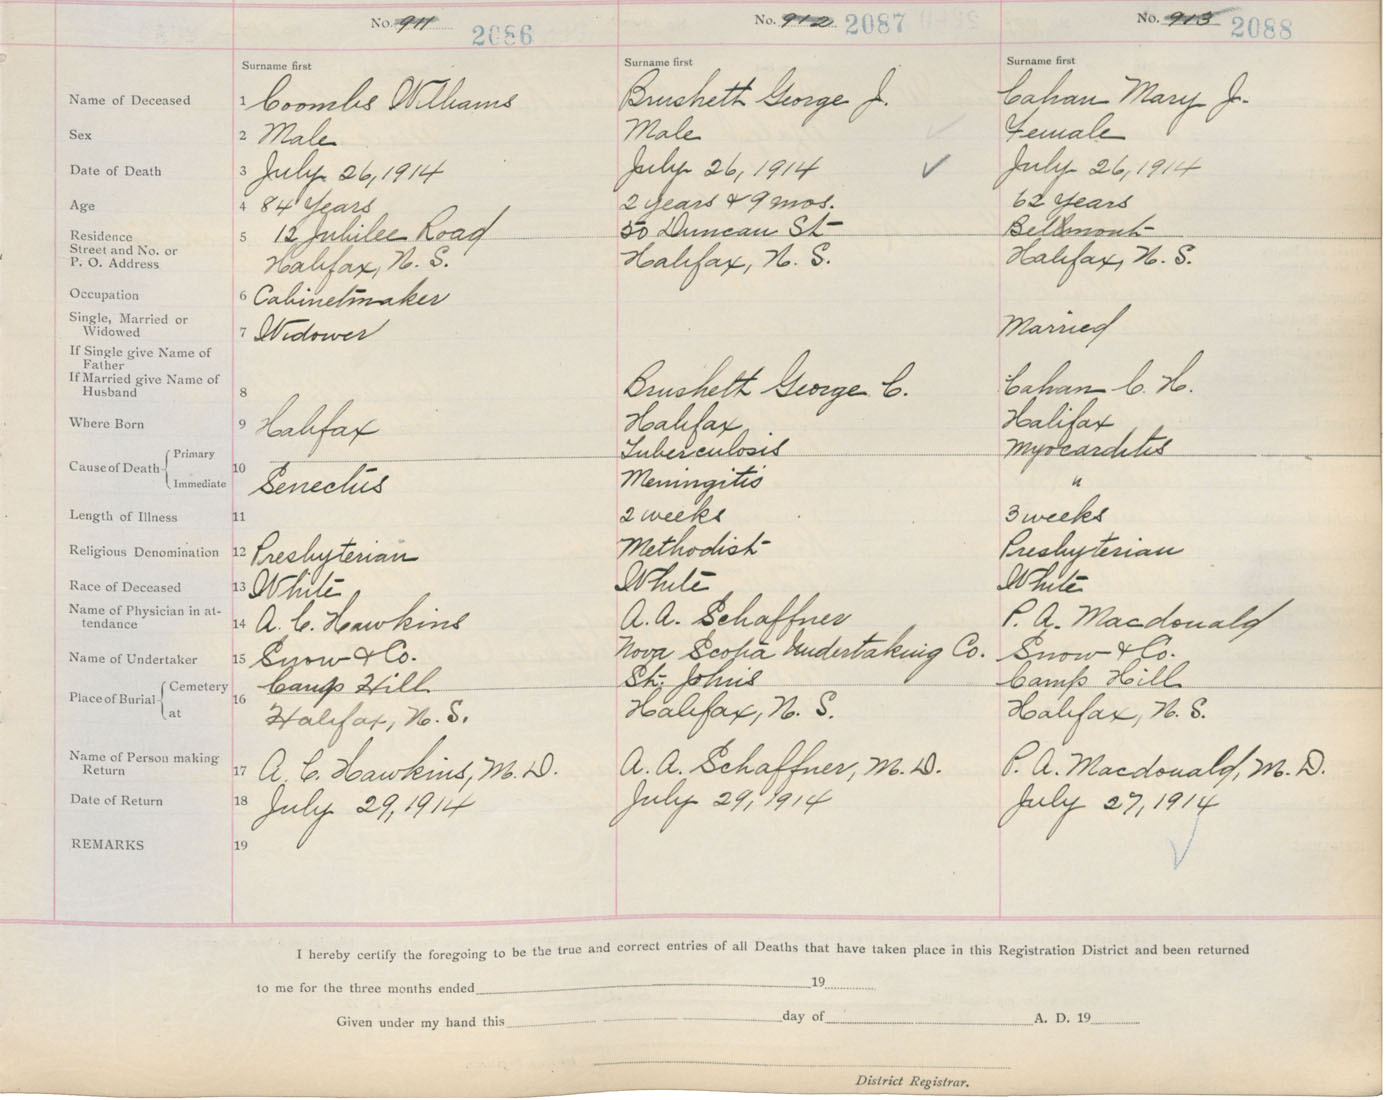 No. 911 2086 No. 912 2087 No. 913 2088
Surname first Surname first Surname first
Name of Deceased 1 Coombs Williams Brushett George J. Cahan Mary J.
Sex 2 Male Male Female
Date of Death 3 July 26, 1914 July 26, 1914 July 26, 1914
Age 4 84 Years 2 years & 9 mos. 62 Years
Residence 5 12 Jubilee Road 50 Duncan St Bellmont
Street and No. or
P. O. Address Halifax, N. S. Halifax, N. S. Halifax, N. S.
Occupation 6 Cabinetmaker
Single, Married or
Widowed 7 Widower Married
If Single give Name of
Father
If Married give Name of
Husband 8 Brushett George C. Cahan C. H.
Where Born 9 Halifax Halifax Halifax
Cause of Death 10 Primary Tuberculosis Myocarditis
Immediate Senectus Meningitis "
Length of Illness 11 2 weeks 3 weeks
Religious Denomination 12 Presbyterian Methodist Presbyterian
Race of Deceased 13 White White White
Name of Physician in at-
tendance 14 A. C. Hawkins A. A. Schaffner P. A. Macdonald
Name of Undertaker 15 Snow & Co. Nova Scotia Undertaking Co. Snow & Co.
Place of Burial 16 Cemetery Camp Hill St. Johns Camp Hill
at Halifax, N. S. Halifax, N. S. Halifax, N. S.
Name of Person making
Return 17 A. C. Hawkins, M. D. A. A. Schaffner, M. D. P. A. Macdonald, M. D.
Date of Return 18 July 29, 1914 July 29, 1914 July 27, 1914
REMARKS 19
I hereby certify the foregoing to be the true and correct entries of all Deaths that have taken place in this Registration District and been returned
to me for the three months ended 19
Given under my hand this day of A. D. 19
District Registrar.